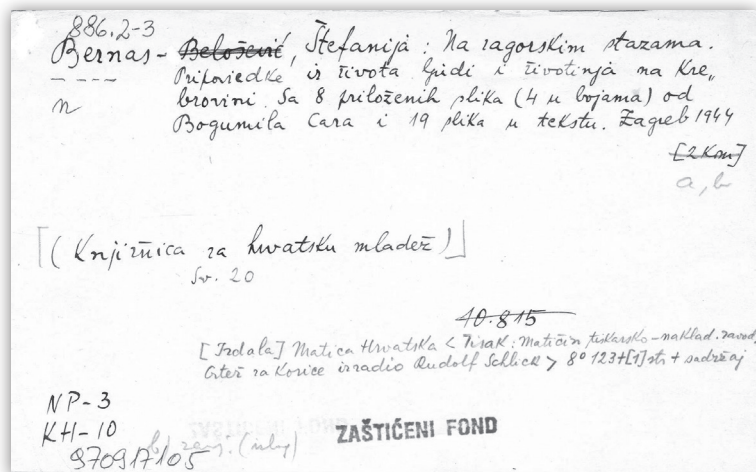 886.2-3
Bernas - Belošević, Štefanija : Na zagorskim stazama.
Pripoviedke iz života ljudi i životinja na Kre„
brovini. Sa 8 priloženih slika (4 u bojama) od
n
Bogumila Cara i 19 slika u tekstu. Zagreb 1944
[2 Kom]
a, b
[(Knjižnica za hrvatsku mladež)]
Sv. 20
10.815
[Izdala] Matica Hrvatska < Tisak: Matičin tiskarsko-naklad. zavod,
Crtež za korice izradio Rudolf Schlick > 8° 123+[1] str + sadržaj
NP-3
KH-10
ZAŠTIĆENI FOND
970917105